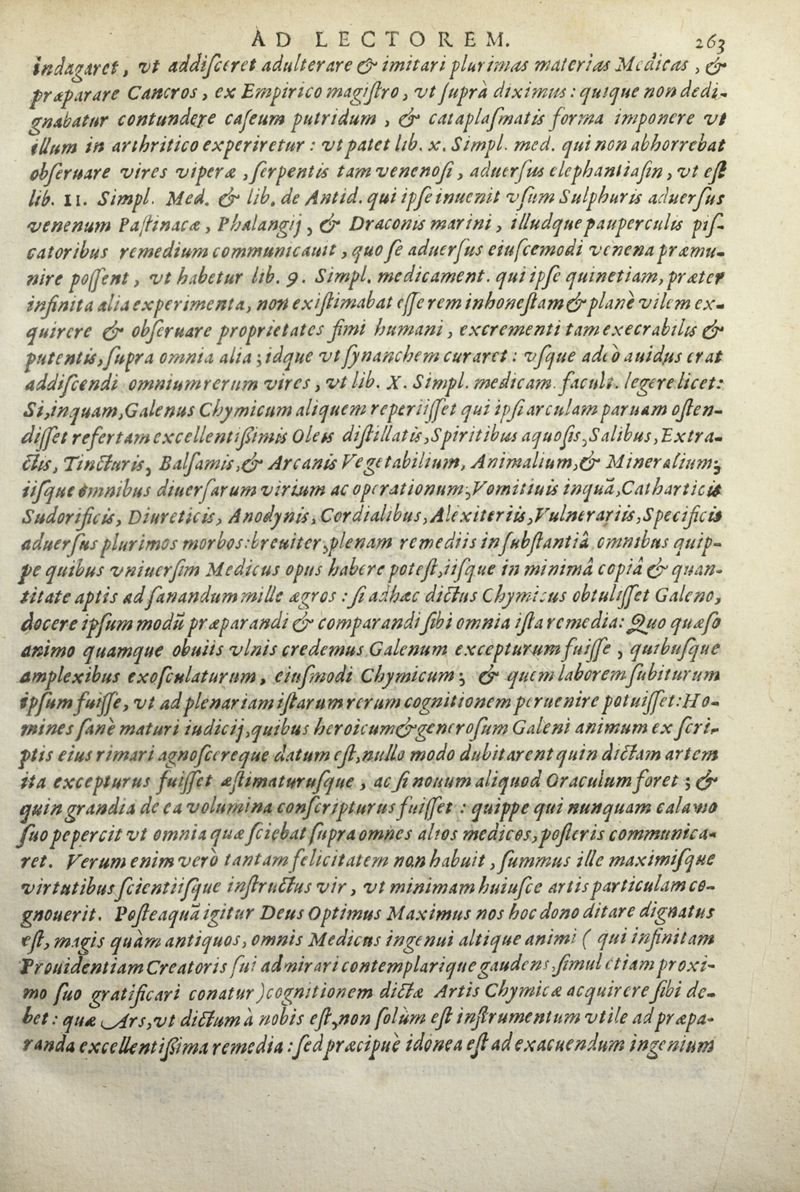 AD LECTOREM. 263
indagaret, vt addiſceret adulterare & imitari plurimas materias Medicas, &
præparare Cancros, ex Empirico magiſtro, vt ſuprà diximus: quique non dedi-
gnabatur contundere caſeum putridum, & cataplaſmatis forma imponere vt
illum in arthritico experiretur: vt patet lib. x. Simpl. med. qui non abhorrebat
obſeruare vires viperæ, ſerpentis tam venenoſi, aduerſus elephantiaſin, vt eſt
lib. 11. Simpl. Med. & lib. de Antid. qui ipſe inuenit vſum Sulphuris aduerſus
venenum Paſtinacæ, Phalangij, & Draconis marini, illudque pauperculis piſ-
catoribus remedium communicauit, quo ſe aduerſus eiuſcemodi venena præmu-
nire poſſent, vt habetur lib. 9. Simpl. medicament. qui ipſe quinetiam, præter
infinita alia experimenta, non exiſtimabat eſſe rem inhoneſtam & planè vilem ex-
quirere & obſeruare proprietates fimi humani, excrementi tam execrabilis &
putentis, ſupra omnia alia; idque vt ſynanchem curaret: vſque adeò auidus erat
addiſcendi omnium rerum vires, vt lib. X. Simpl. medicam. facult. legere licet:
Si, inquam, Galenus Chymicum aliquem reperiiſſet qui ipſi arculam paruam oſten-
diſſet refertam excellentiſſimis Oleis diſtillatis, Spiritibus aquoſis, Salibus, Extra-
ctis, Tincturis, Balſamis, & Arcanis Vegetabilium, Animalium, & Mineralium;
iiſque omnibus diuerſarum virium ac operationum; Vomitiuis inquã, Catharticis
Sudorificis, Diureticis, Anodynis, Cordialibus, Alexiteriis, Vulnerariis, Specificis
aduerſus plurimos morbos: breuiter, plenam remediis in ſubſtantiâ omnibus quip-
pe quibus vniuerſim Medicus opus habere poteſt, iiſque in minimâ copiâ & quan-
titate aptis ad ſanandum mille ægros: ſi adhæc dictus Chymicus obtuliſſet Galeno,
docere ipſum modũ præparandi & comparandi ſibi omnia iſta remedia: Quo quæſo
animo quamque obuiis vlnis credemus Galenum excepturum fuiſſe, quibuſque
amplexibus exoſculaturum, eiuſmodi Chymicum; & quem laborem ſubiturum
ipſum fuiſſe, vt ad plenariam iſtarum rerum cognitionem peruenire potuiſſet: Ho-
mines ſanè maturi iudicij, quibus heroicum & generoſum Galeni animum ex ſcri-
ptis eius rimari agnoſcereque datum eſt, nullo modo dubitarent quin dictam artem
ita excepturus fuiſſet æſtimaturuſque, ac ſi nouum aliquod Oraculum foret; &
quin grandia de ea volumina conſcripturus fuiſſet: quippe qui nunquam calamo
ſuo pepercit vt omnia quæ ſciebat ſupra omnes alios medicos, poſteris communica-
ret. Verum enim verò tantam felicitatem non habuit, ſummus ille maximiſque
virtutibus ſcientiiſque inſtructus vir, vt minimam huiuſce artis particulam co-
gnouerit. Poſteaquã igitur Deus Optimus Maximus nos hoc dono ditare dignatus
eſt, magis quàm antiquos, omnis Medicus ingenui altique animi ( qui infinitam
Prouidentiam Creatoris ſui admirari contemplarique gaudens, ſimul etiam proxi-
mo ſuo gratificari conatur) cognitionem dictæ Artis Chymicæ acquirere ſibi de-
bet: quæ Ars, vt dictum à nobis eſt, non ſolùm eſt inſtrumentum vtile ad præpa-
randa excellentiſſima remedia: ſed præcipuè idonea eſt ad exacuendum ingenium